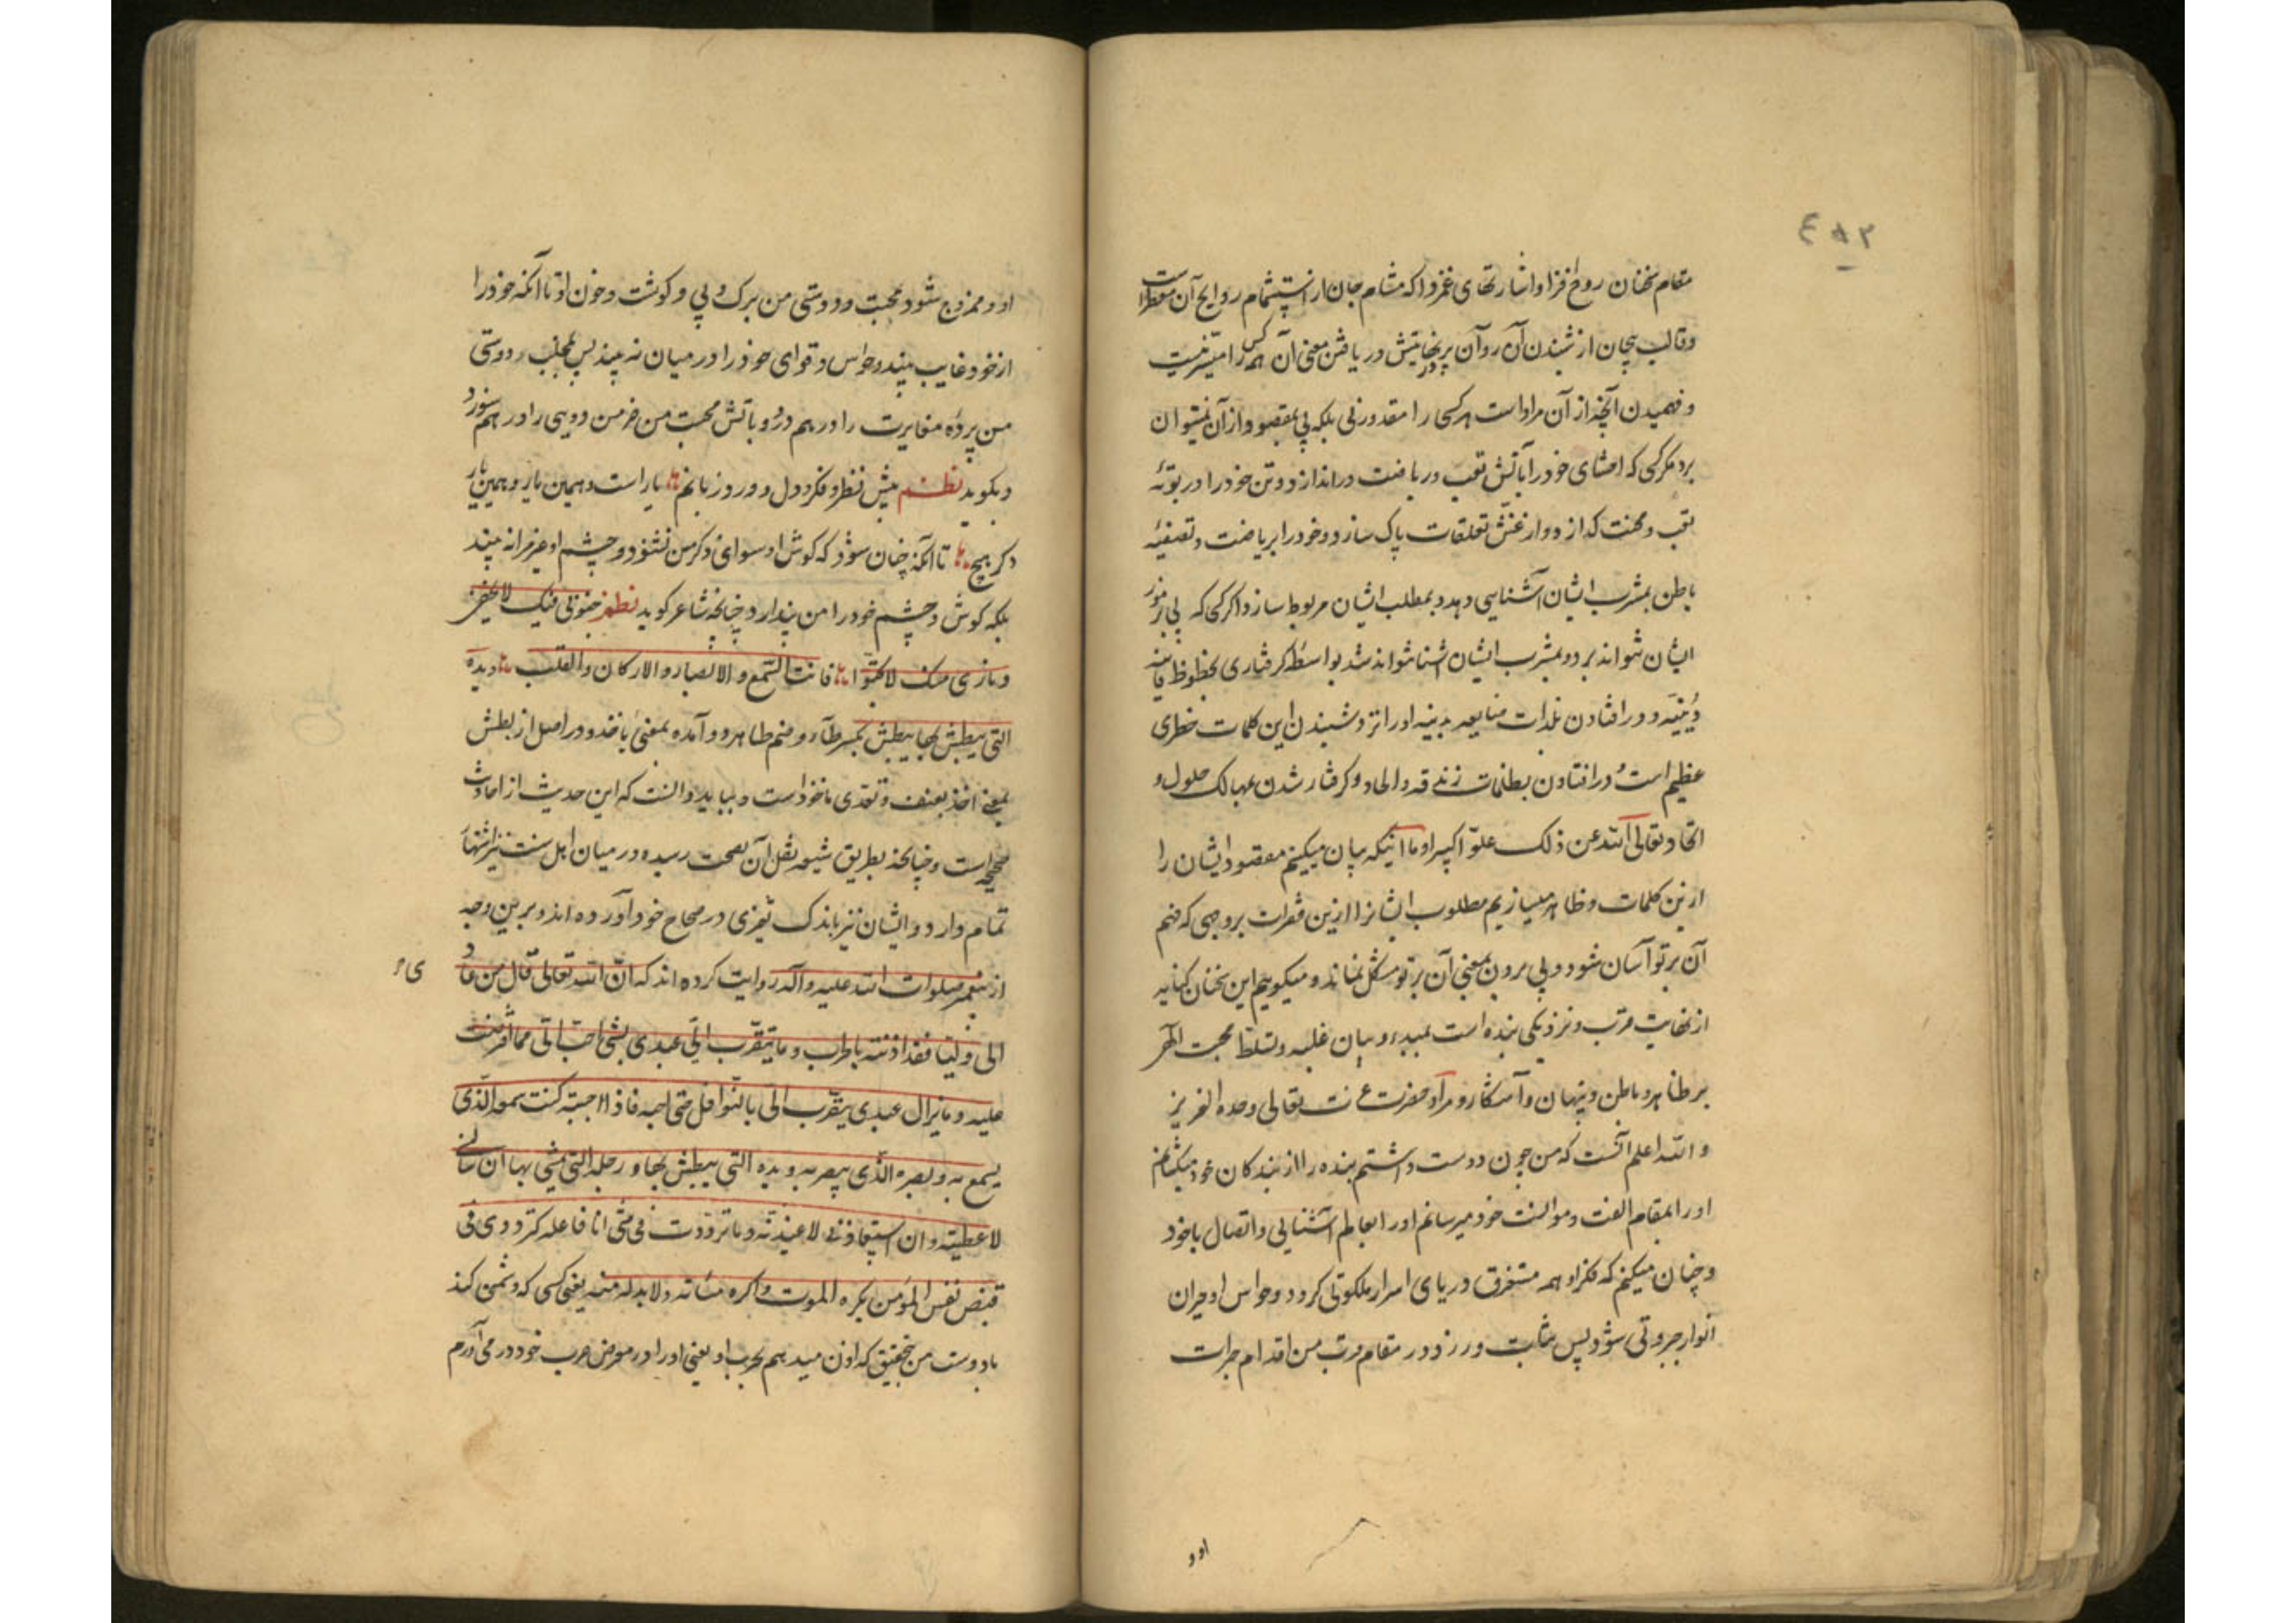 ۴۸۲
مقام سخنان روح افزا و اشارتهای غمزدا که مشام جان از استشمام روایح آن معطر است
و قالب بیجان از شنیدن آن روان پرنهایتش دریافتن معنی آن همه کس را میسر نیست
و فهمیدن آنچه از آن مراد است هر کسی را مقدور نی بلکه پی بمقصود از آن نمیتوان
برد مگر کسی که احشای خود را بآتش تعب و ریاضت در اندازد و تن خود را در بوتهٔ
تعب و محنت گدازد و از غش تعلقات پاک سازد و خود را بریاضت و تصفیهٔ
باطن بمشرب ایشان آشنایی دهد و بمطلب ایشان مربوط سازد اگر کسی که پی برموز
ایشان نتواند برد و بمشرب ایشان آشنا نتواند شد بواسطهٔ گرفتاری بحظوظ فانیه
دنیّه و در افتادن بلذات بدنیه او را از شنیدن این کلمات خطری
عظیم است و در افتادن بظلمات زندقه و الحاد و گرفتار شدن بمهالک حلول و
اتحاد تعالی الله عن ذلک علوّا کبیرا و ما اینکه بیان میکنیم مقصود ایشان را
ازین کلمات و ظاهر میسازیم مطلوب ایشانرا ازین فقرات بروجهی که فهم
آن بر تو آسان شود و پی بردن بمعنی آن بر تو مشکل نماند و میگوییم این سخنان کنایه
از نهایت قرب و نزدیکی بنده است بمبدء و بیان غلبه و تسلط محبت الهی
بر ظاهر و باطن و پنهان و آشکار و مراد حضرت عزت تعالی وحده العزیز
و الله اعلم آنست که من چون دوست داشتم بنده را از بندگان خود میکشانم
او را بمقام الفت و موانست خود میرسانم او را بعالم آشنایی و اتصال با خود
و چنان میکنم که فکر او همه مستغرق دریای اسرار ملکوتی گردد و حواس او حیران
انوار جبروتی شود پس ثابت ورزد در مقام قرب من اقدام جرات
او و
او و ممزوج شود محبت و دوستی من برگ و پی و گوشت و خون او تا آنکه خود را
از خود غایب بیند و حواس و قوای خود را در میان نه بیند پس بجلب دوستی
من پردهٔ مغایرت را در هم درد و بآتش محبت من خرمن دویی را در هم سوزد
و بگوید نظم پیش نظر و فکر و دل و ورد زبانم یار است و همین یار و همین یار
دگر هیچ تا آنکه چنان شود که گوش او سوای ذکر من نشنود و چشم او غیر مرا نه بیند
بلکه گوش و چشم خود را من پندارد چنانچه شاعر گوید نظم جنونی فیک لا یخفی
و ناری منک لا تخبو فانت السمع و الابصار و الارکان و القلب و یده
التی یبطش بها یبطش بکسر طآء و ضم طا هر دو آمده بمعنی یاخذ و در اصل از بطش
بمعنی اخذ بعنف و تعدی ماخوذ است و بباید دانست که این حدیث از احادیث
صحیحه است و چنانچه بطریق شیعه نقل آن بصحت رسیده در میان اهل سنت نیز اشتهار
تمام دارد و ایشان نیز باندک تغیری در صحاح خود آورده اند و برین وجه
از پیغمبر صلوات الله علیه و آله روایت کرده اند که ان الله تعالی قال من عاد
ی
الی ولیا فقد اذنته بالحرب و ما یتقرب الیّ عبدی بشئ احب الیّ مما افترضت
علیه و ما یزال عبدی یتقرب الیّ بالنوافل حتی احبه فاذا احببته کنت سمعه الذی
یسمع به و بصره الذی یبصر به و یده التی یبطش بها و رجله التی یمشی بها ان سالنی
لاعطیته و ان استعاذنی لاعیذنه و ما ترددت فی شئ انا فاعله کترددی فی
قبض نفس المؤمن یکره الموت و اکره مسائته و لا بد له منه یعنی کسی که دشمنی کند
با دوست من بتحقیق که اذن میدهم بحرب او یعنی او را در معرض حرب خود در می آورم